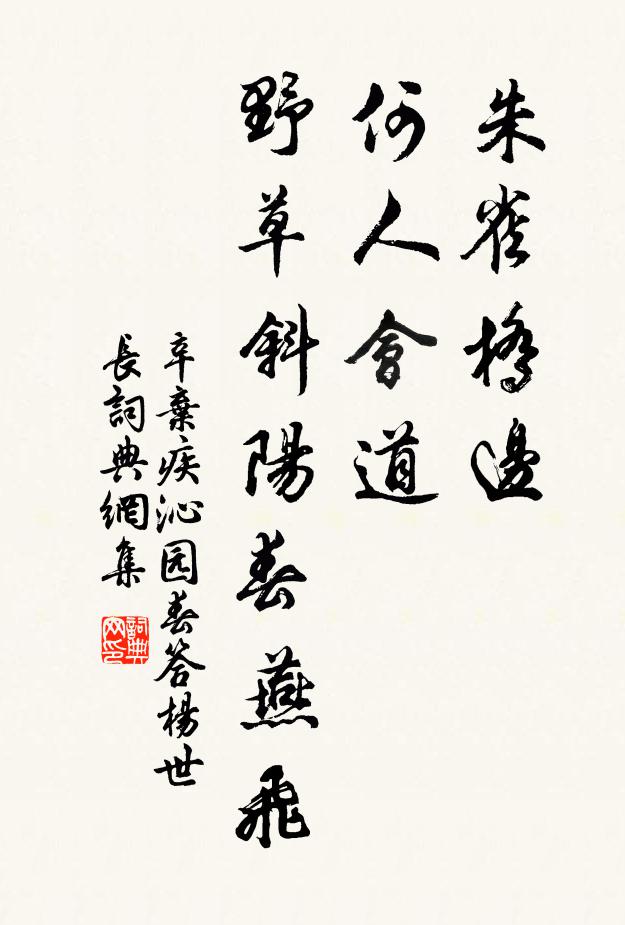 朱雀橋邊
何人會道
野草斜陽春燕飛
辛棄疾沁园春答楊世
長詞典網集
詞典
网印